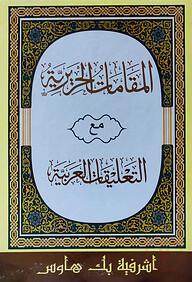 المقامات الحريرية
مع
التعليقات العربية
اشرفية بك هاوس